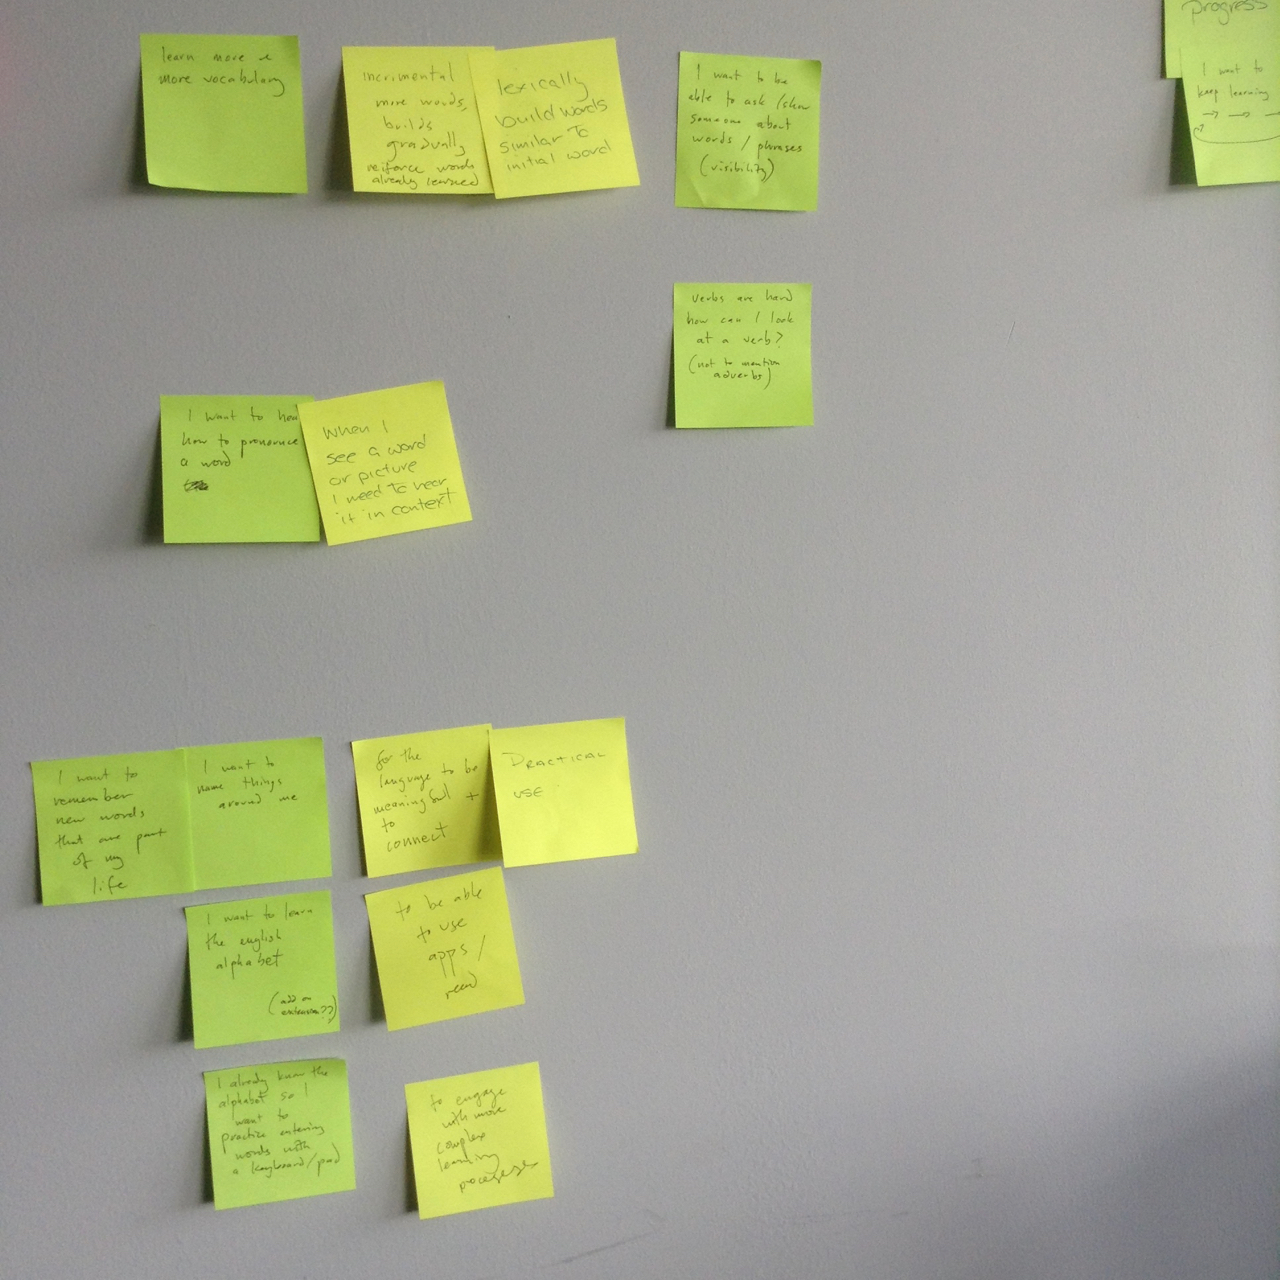 learn more &
more vocabulary
incrimental
more words,
builds
gradually
reiforce words
already learned
lexically
build words
similar to
initial word
I want to be
able to ask/show
someone about
words / phrases
(visibility)
progress
I want to
keep learning
verbs are hard
how can I look
at a verb?
(not to mention
adverbs)
I want to hear
how to pronounce
a word
When I
see a word
or picture
I need to hear
it in context
I want to
remember
new words
that are part
of my
life
I want to
name things
around me
for the
language to be
meaningful +
to
connect
PRACTICAL
USE
I want to learn
the english
alphabet
(add on
extension??)
to be able
to use
apps /
read
I already know the
alphabet so I
want to
practice entering
words with
a keyboard/pad
to engage
with more
complex
learning
processes